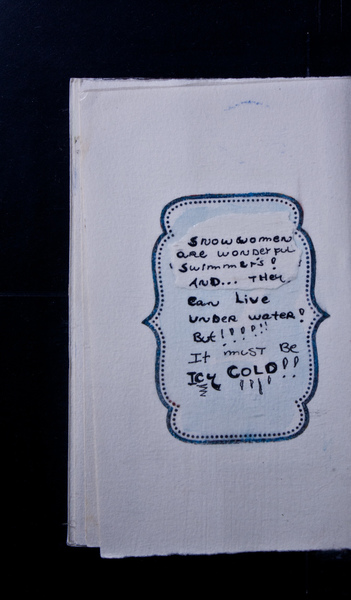 Snowwomen
are wonderful
swimmers!
AND... They
can Live
under water!
But!!!!!!
It must Be
Icy COLD!!